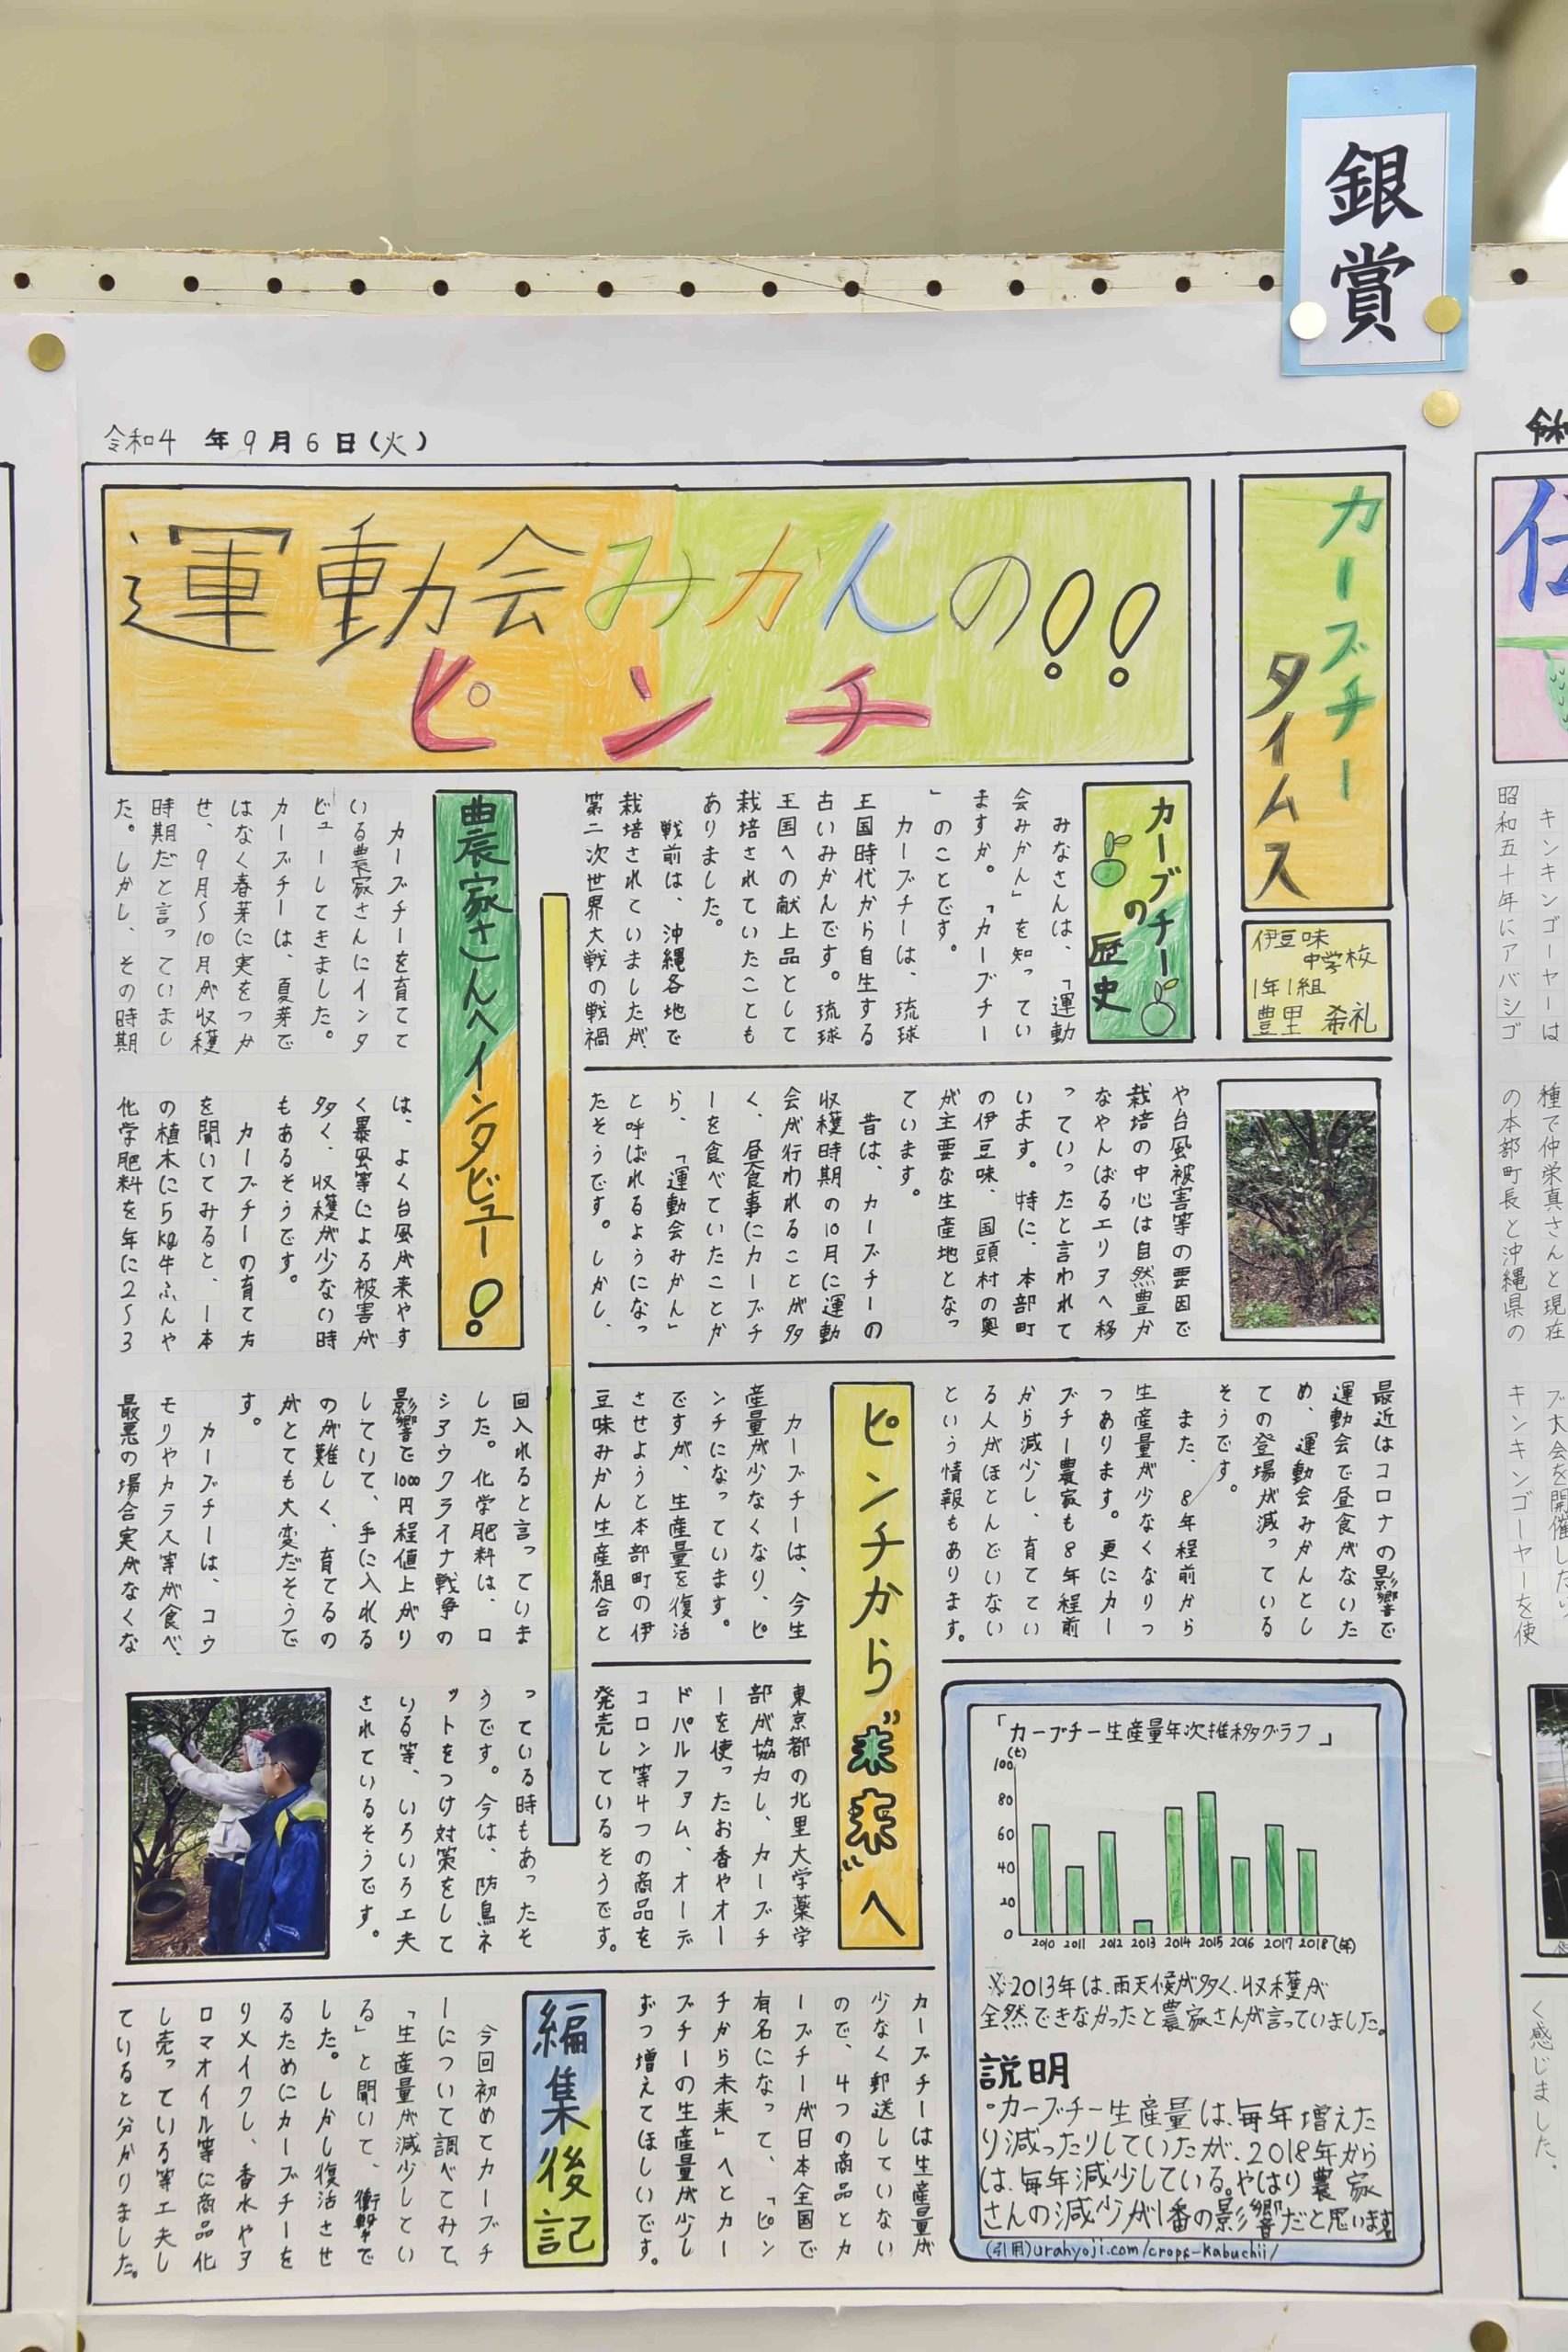 銀賞
令和4年9月6日(火)
カーブチー
タイムス
伊豆味
中学校
1年1組
豊里 希礼
運動会みかんの!!
ピンチ
カーブチー
の
歴史
みなさんは、「運動
会みかん」を知ってい
ますか。「カーブチー
」のことです。
カーブチーは、琉球
王国時代から自生する
古いみかんです。琉球
王国への献上品として
栽培されていたことも
ありました。
戦前は、沖縄各地で
栽培されていましたが、
第二次世界大戦の戦禍
や台風被害等の要因で
栽培の中心は自然豊か
なやんばるエリアへ移
っていったと言われて
います。特に、本部町
の伊豆味、国頭村の奥
が主要な生産地となっ
ています。
昔は、カーブチーの
収穫時期の10月に運動
会が行われることが多
く、昼食事にカーブチ
ーを食べていたことか
ら、「運動会みかん」
と呼ばれるようになっ
たそうです。しかし、
最近はコロナの影響で
運動会で昼食がないた
め、運動会みかんとし
ての登場が減っている
そうです。
また、8年程前から
生産量が少なくなりつ
つあります。更にカー
ブチー農家も8年程前
から減少し、育ててい
る人がほとんどいない
という情報もあります。
ピンチから"未来"へ
カーブチーは、今生
産量が少なくなり、ピ
ンチになっています。
ですが、生産量を復活
させようと本部町の伊
豆味みかん生産組合と
東京都の北里大学薬学
部が協力し、カーブチ
ーを使ったお香やオー
ドパルファム、オーデ
コロン等4つの商品を
発売しているそうです。
カーブチーは生産量が
少なく郵送していない
ので、4つの商品とカ
ーブチーが日本全国で
有名になって、「ピン
チから未来」へとカー
ブチーの生産量が少し
ずつ増えてほしいです。
「カーブチー生産量年次推移グラフ」
(t)
100
80
60
40
20
0
2010 2011 2012 2013 2014 2015 2016 2017 2018(年)
※2013年は、雨天候が多く、収穫が
全然できなかったと農家さんが言っていました。
説明
・カーブチー生産量は、毎年増えた
り減ったりしていたが、2018年から
は、毎年減少している。やはり農家
さんの減少が1番の影響だと思います
(引用)urahyoji.com/crops-kabuchii/
農家さんへインタビュー!
カーブチーを育てて
いる農家さんにインタ
ビューしてきました。
カーブチーは、夏芽で
はなく春芽に実をつか
せ、9月〜10月が収穫
時期だと言っていまし
た。しかし、その時期
は、よく台風が来やす
く暴風等による被害が
多く、収穫が少ない時
もあるそうです。
カーブチーの育て方
を聞いてみると、1本
の植木に5kg牛ふんや
化学肥料を年に2〜3
回入れると言っていま
した。化学肥料は、ロ
シアウクライナ戦争の
影響で1000円程値上がり
していて、手に入れる
のが難しく、育てるの
がとても大変だそうで
す。
カーブチーは、コウ
モリやカラス等が食べ、
最悪の場合実がなくな
っている時もあったそ
うです。今は、防鳥ネ
ットをつけ対策をして
いる等、いろいろ工夫
されているそうです。
編集後記
今回初めてカーブチ
ーについて調べてみて、
「生産量が減少してい
る」と聞いて、衝撃で
した。しかし復活させ
るためにカーブチーを
リメイクし、香水やア
ロマオイル等に商品化
し売っている等工夫し
ていると分かりました。
キンキンゴーヤーは
昭和五十年にアバシゴ
種で仲栄真さんと現在
の本部町長と沖縄県の
キンキンゴーヤーを使
く感じました。